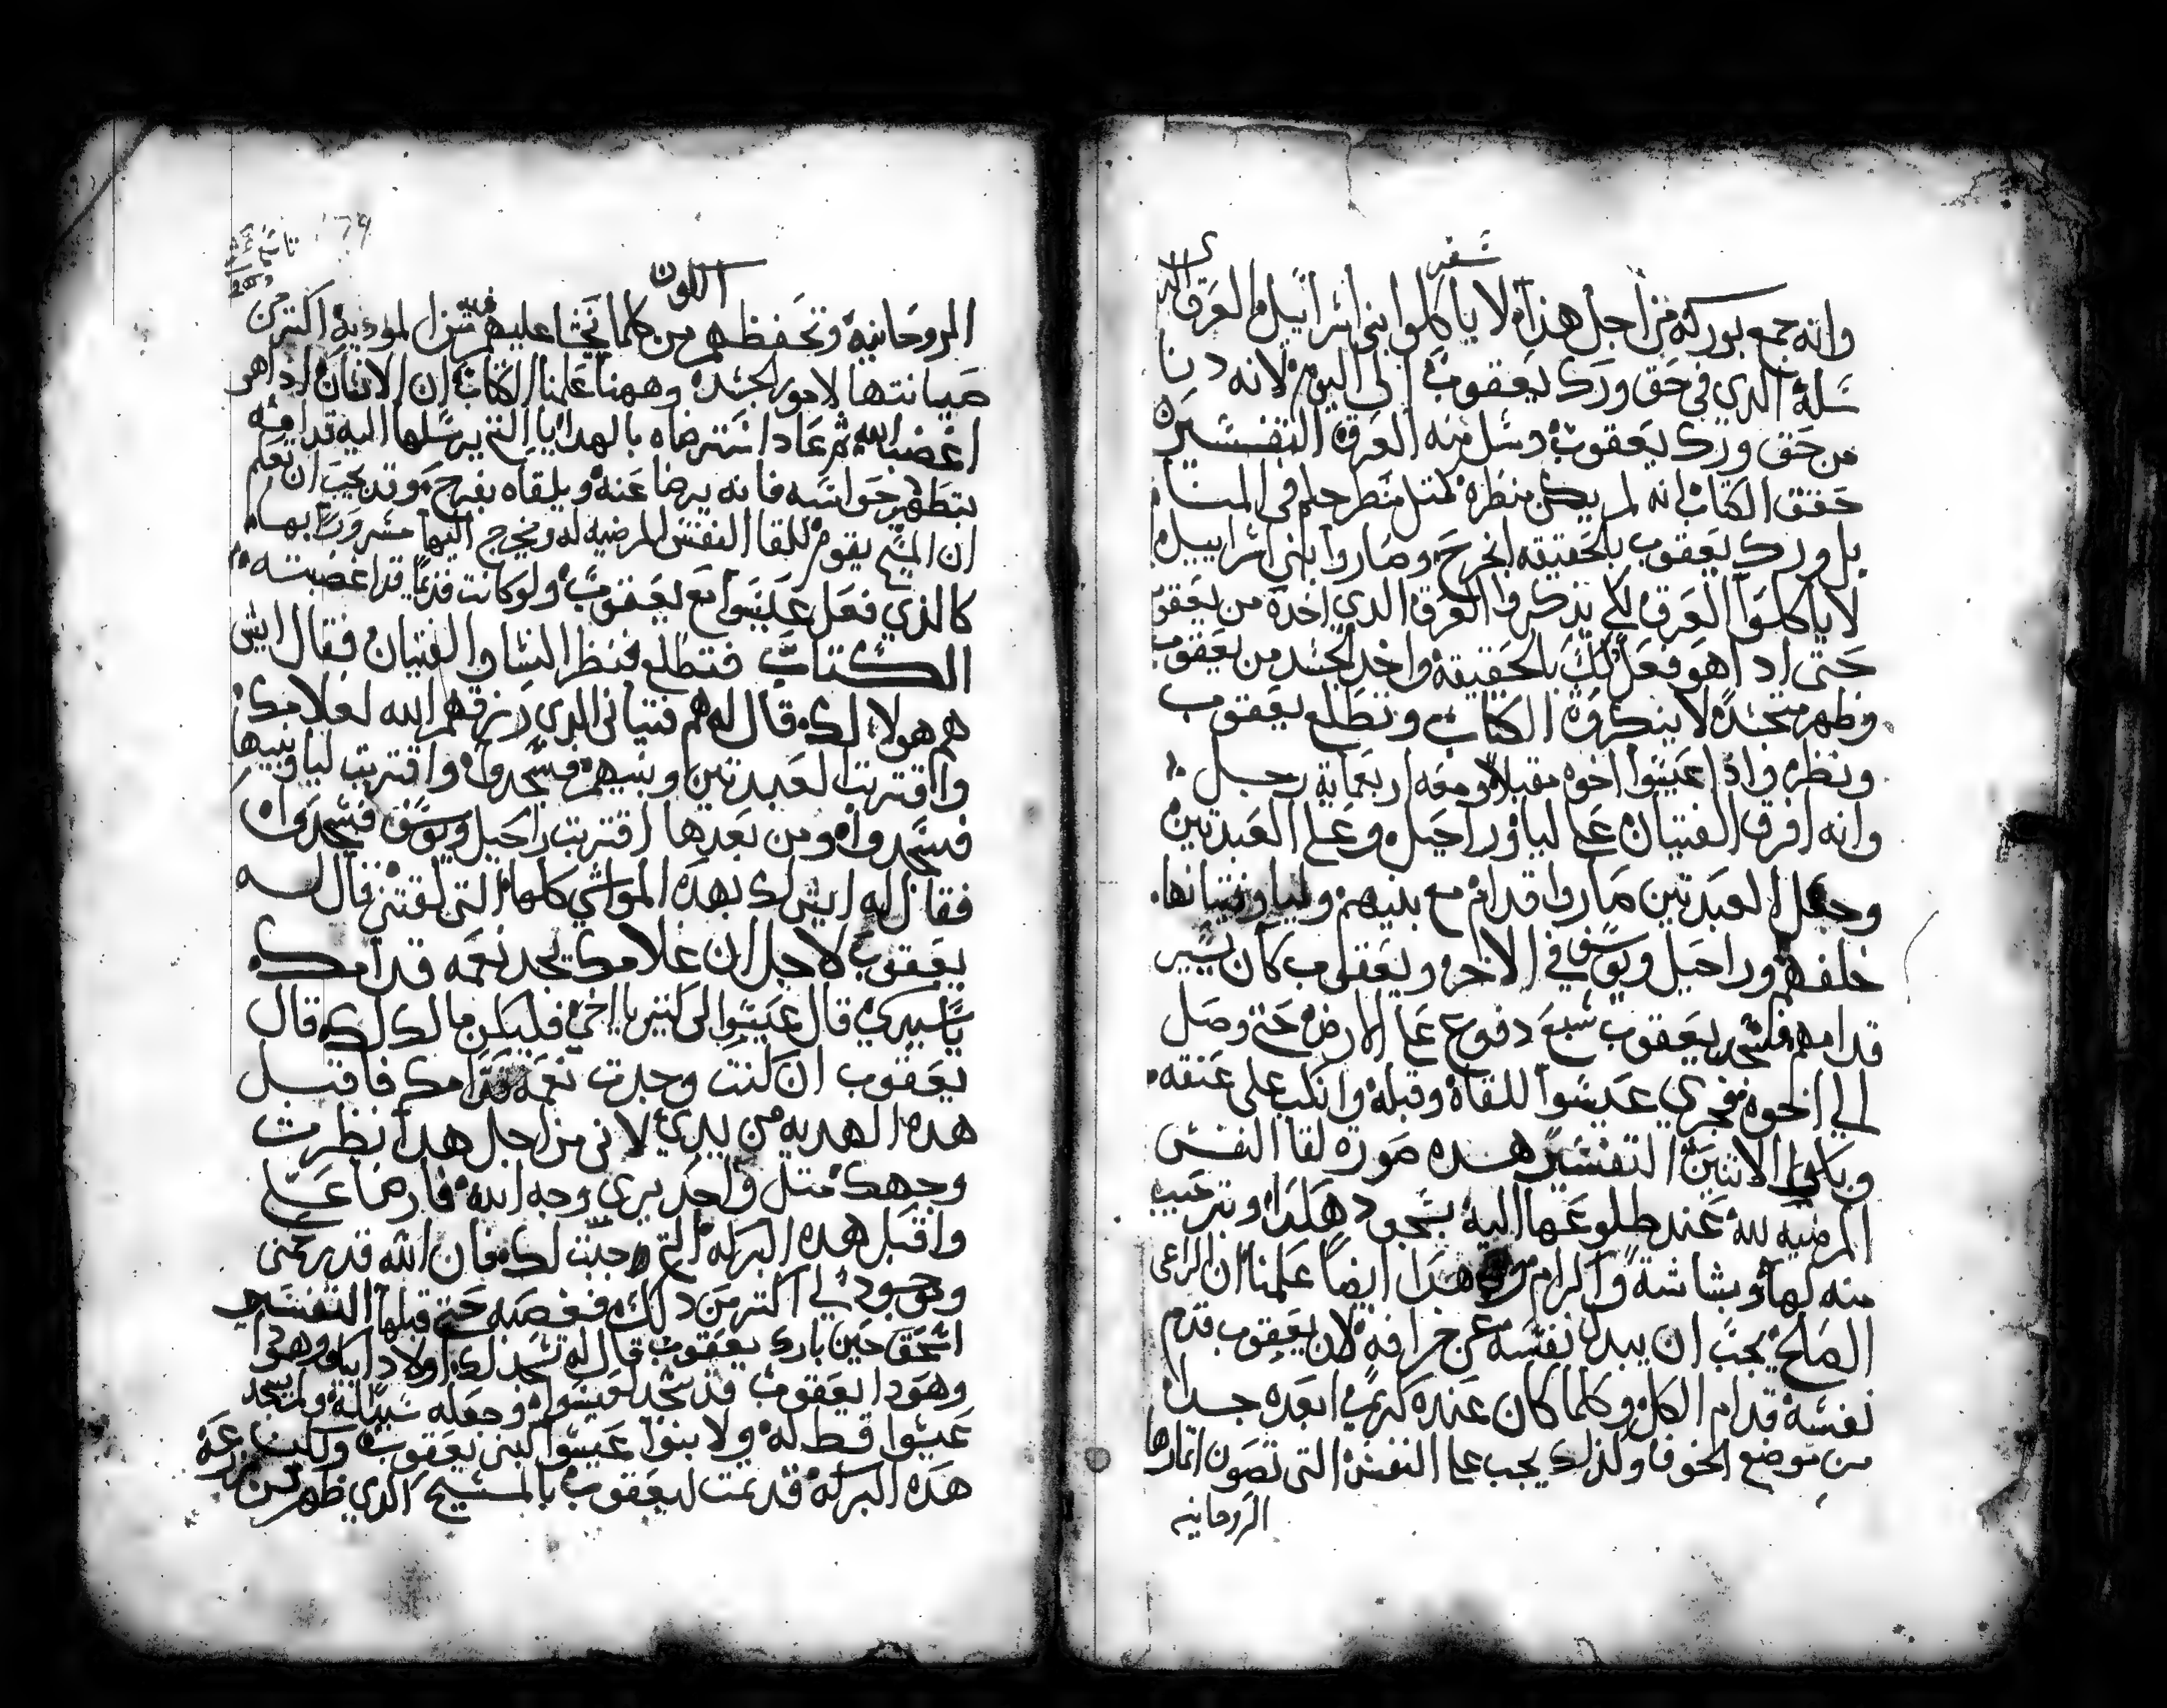 سفر
وانه جمع بوركه من اجل هدا لا ياكلوا بنى اسراييل العرق الدي
سله الدي في حق ورك يعقوب الى اليوم لانه دنا
من حق ورك يعقوب دسل منه العرق التفسير
حقق الكتاب انه لم يكن منظره كمتل منظر حلم فى المنام
بل ورك يعقوب بالحقيقه انجرح وصاروا بنى اسراييل
لا ياكلوا العرق لكي يذكروا العرق الدي اخده من يعقوب
حتى ادا هو فعل دلك بالحقيقه واخد الجسد من يعقوب
وظهر متجسدا لا ينكروه الكتاب وتطلع يعقوب
ونظر وادا عيسوا اخوه مقبلا ومعه اربعماية رجل
وانه افرق الفتيان على ليا وراحيل وعلى العبدتين
وجعل العبدتين صاروا قدام مع بنيهم وليا وفتيانها
خلفهم وراحيل ويوسف في الاخر ويعقوب كان يسير
قدامهم فسجد يعقوب سبع دفوع على الارض حتى وصل
الى اخوه فجري عيسوا للقاه وقبله وانكب على عنقه
وبكى الاتنين التفسير هده صورة لقا النفس
المرضيه لله عند طلوعها اليه بسجود هكدا وترحيب
منه لها وبشاشة واكرام هدا ايضا علمنا ان الراعى
الصالح يجب ان يبدل نفسه عن خرافه لان يعقوب قدم
نفسه قدام الكل وكلما كان عنده كريم ابعده جدا
من موضع الخوف ولذلك يجب على النفس التى تصون اتمارها
الروحانيه
74
اللون
الروحانية وتحفظهم من كلما نخشا عليهم فيه من المودية اكتر من
صيانتها لامور الجسد وههنا علمنا الكتاب ان الانسان ادا هو
اغضب الله تم عاد استرضاه بالهدايا التي يرسلها اليه قدامه
بتطهير حواسه فانه يرضا عنه ويلقاه بفرح وقد يجب ان نعلم
ان المسيح يقوم للقا النفس المرضيه له ويخرج اليها مسرورا بها
كالذي فعل عيسوا مع يعقوب ولو كانت قديما قد اغضبته
الكتاب فتطلع فنظر النسا والفتيان فقال ايش
هم هولا لك قال له هم فتياني الدي رزقهم الله لغلامك
واقتربت العبدتين وبنيهم فسجدوا واقتربت ليا وبنيها
فسجدوا ومن بعدها اقتربت راحيل ويوسف فسجدوا
فقال له ايش لك بهده المواشي كلها التى لقتنى قال له
يعقوب لاجل ان غلامك يجد نعمه قدامك
ياسيدي قال عيسوا لى كتير يا اخي فليكن مالك لك قال
يعقوب ان كنت وجدت نعمه قدامك فاقبل
هده الهديه من يدي لانى من اجل هدا نظرت
وجهك متل واحد يرى وجه الله فارضا علي
واقبل هده البركه التي جبت لك فان الله قد رحمنى
وموجود لي اكتر من دلك فغصبه حتى قبلها التفسير
اسحق حين بارك يعقوب قال له تسجد لك اولاد ابيك وهودا
وهودا يعقوب قد سجد لعيسوا وجعله سيدا له ولم يسجد
عيسوا قط له ولا بنوا عيسوا لبنى يعقوب ولكن
هده البركه قد تمت ليعقوب بالمسيح الدي ظهر من